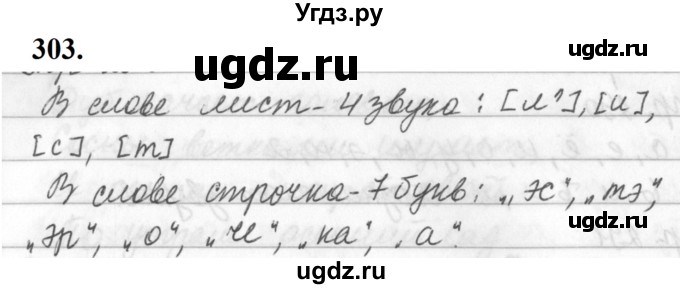 Угдз.ру
303.
угдз.ру
В слове лист - 4 звука: [л'], [и],
[с], [т]
В слове строчка - 7 букв: „эс", „тэ",
„эр", „о", „че", „ка", „а".
ugdz.ru
ugdz.ru